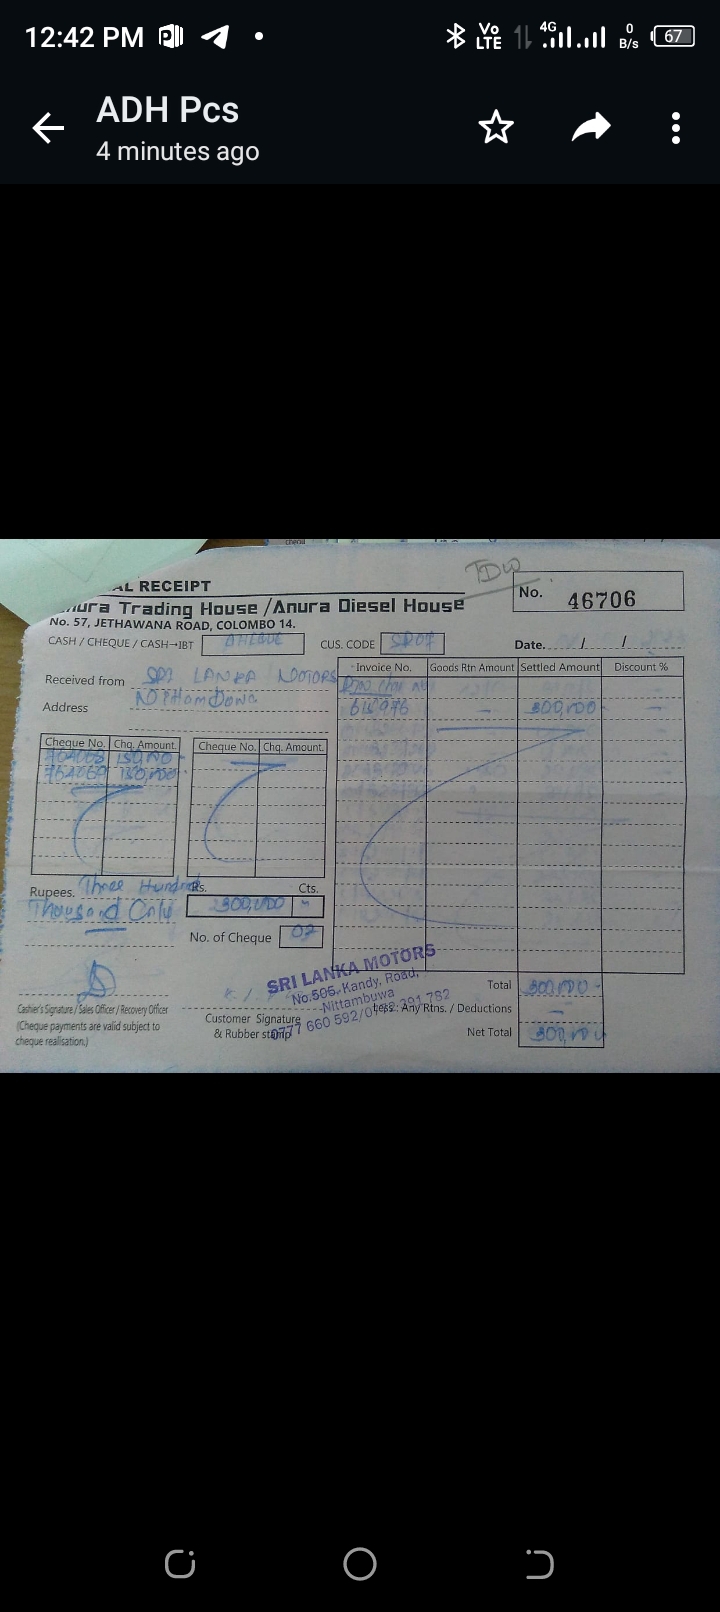 12:42 PM
Vo LTE 4G 0 B/s 67
ADH Pcs
4 minutes ago
AL RECEIPT
Anura Trading House /Anura Diesel House
No. 57, JETHAWANA ROAD, COLOMBO 14.
No. 46706
CASH / CHEQUE / CASH→IBT CHEQUE CUS. CODE Date. / /
Received from SRI LANKA MOTORS
Address
Invoice No. Goods Rtn Amount Settled Amount Discount %
615976 - 300,000 -
Cheque No. Chq. Amount. Cheque No. Chq. Amount.
150,000
150,000
Rupees. Three Hundred Rs. Cts.
Thousand Only 300,000
No. of Cheque 02
SRI LANKA MOTORS
No.595, Kandy, Road,
Nittambuwa
0777 660 592/
Total 300,000
Less: Any Rtns. / Deductions -
Net Total 300,000
Cashier's Signature / Sales Officer / Recovery Officer
(Cheque payments are valid subject to
cheque realisation.)
Customer Signature
& Rubber stamp